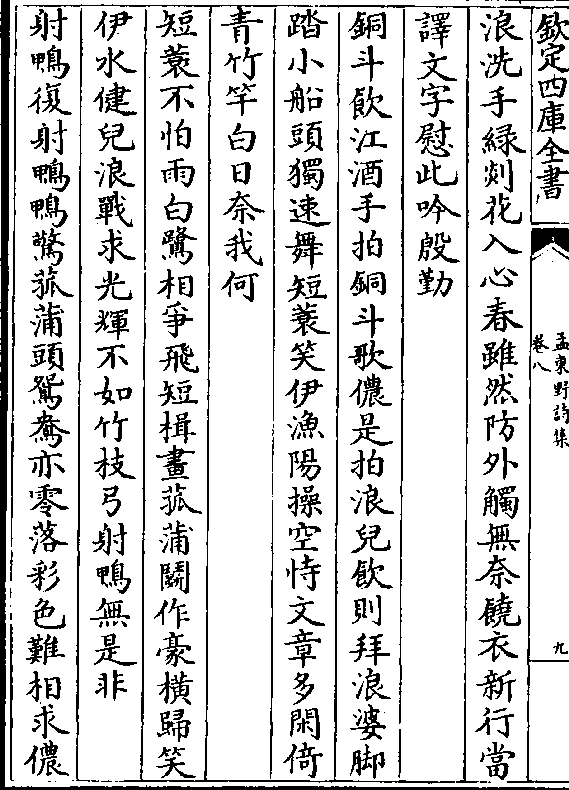 欽定四庫全書
孟東野詩集
卷八
九
浪洗手緑剡花入心春雖然防外觸無奈饒衣新行當
譯文字慰此吟殷勤
銅斗飲江酒手拍銅斗歌儂是拍浪兒飲則拜浪婆脚
踏小船頭獨速舞短蓑笑伊漁陽操空恃文章多閑倚
青竹竿白日奈我何
短蓑不怕雨白鷺相爭飛短楫畫菰蒲鬭作豪横歸笑
伊水健兒浪戰求光輝不如竹枝弓射鴨無是非
射鴨復射鴨鴨驚菰蒲頭鴛鴦亦零落彩色難相求儂